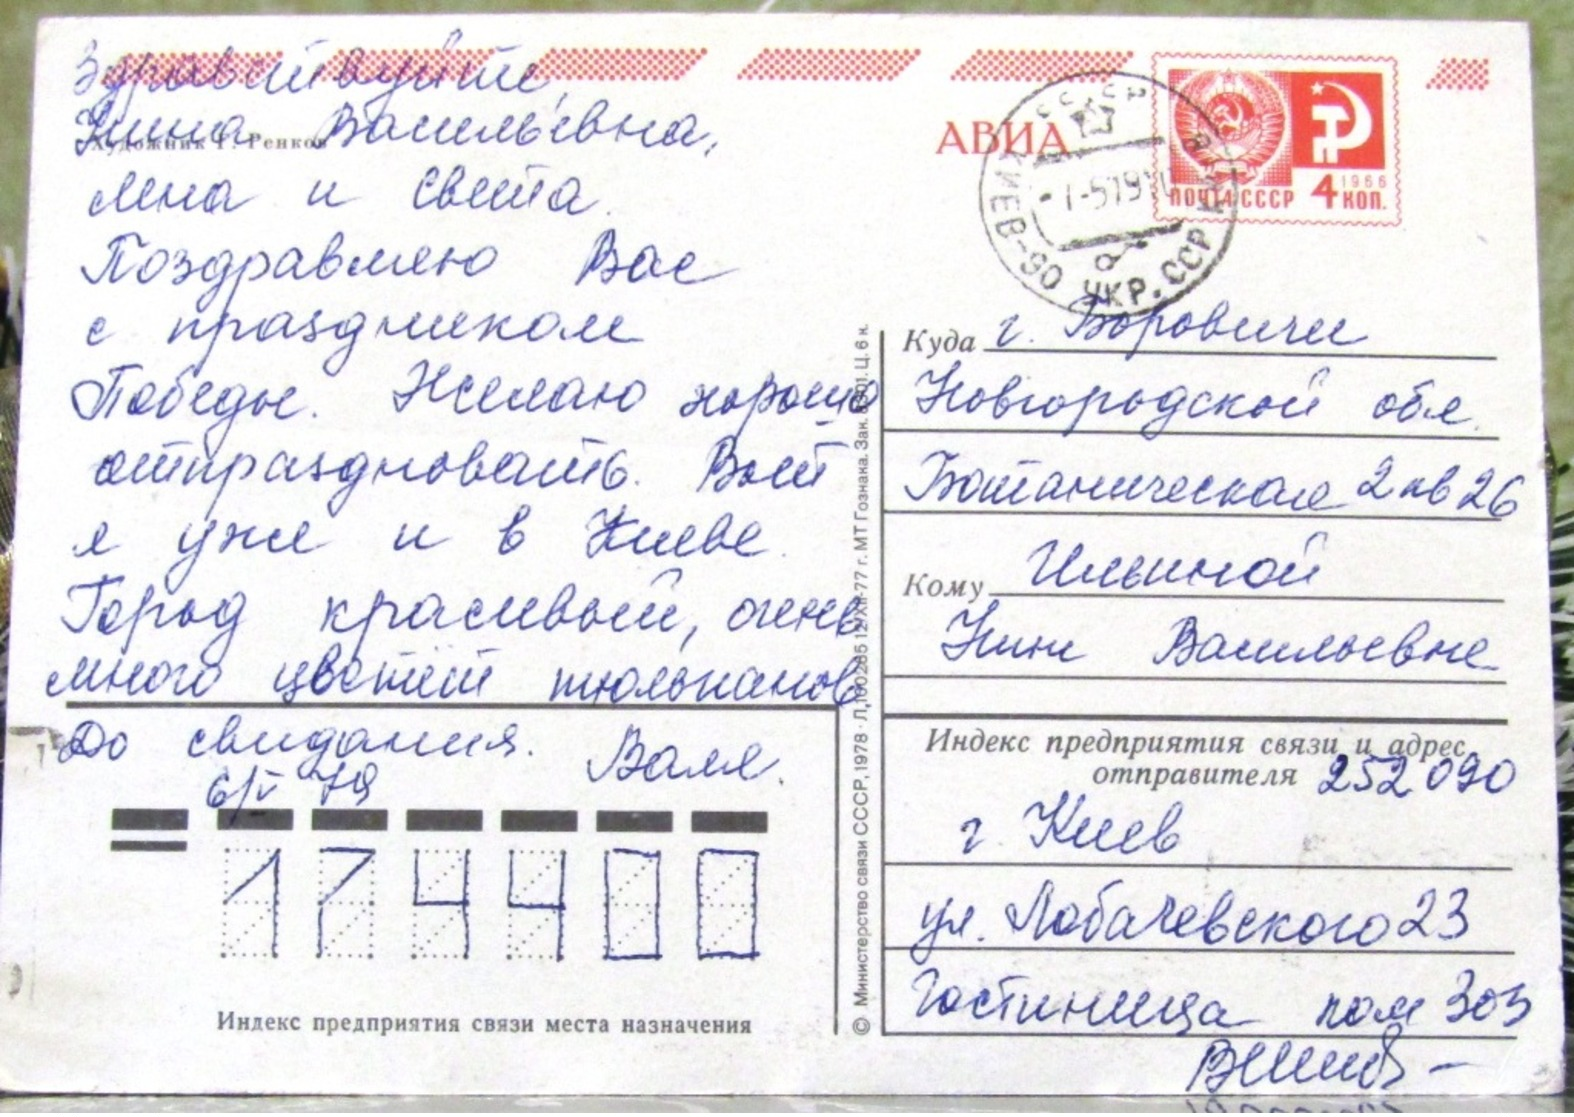 Здравствуйте,
Художник Г. Ренков
Нина Васильевна,
Лена и Света.
Поздравляю Вас
с праздником
Победы. Желаю хорошо
отпраздновать. Вот
я уже и в Киеве.
Город красивый, очень
много цветет тюльпанов
До свидания. Валя.
6/V 79
174400
Индекс предприятия связи места назначения
© Министерство связи СССР, 1978
12/XII-77 г. МТ Гознака. Зан. Ц. 6 к.
АВИА
ПОЧТА СССР 4 КОП.
1966
КИЕВ-90 УКР. ССР
Куда г. Боровичи
Новгородской обл.
Ботаническая 2 кв 26
Кому Ильиной
Нине Васильевне
Индекс предприятия связи и адрес
отправителя 252090
г Киев
ул. Лобачевского 23
Гостиница ком 303